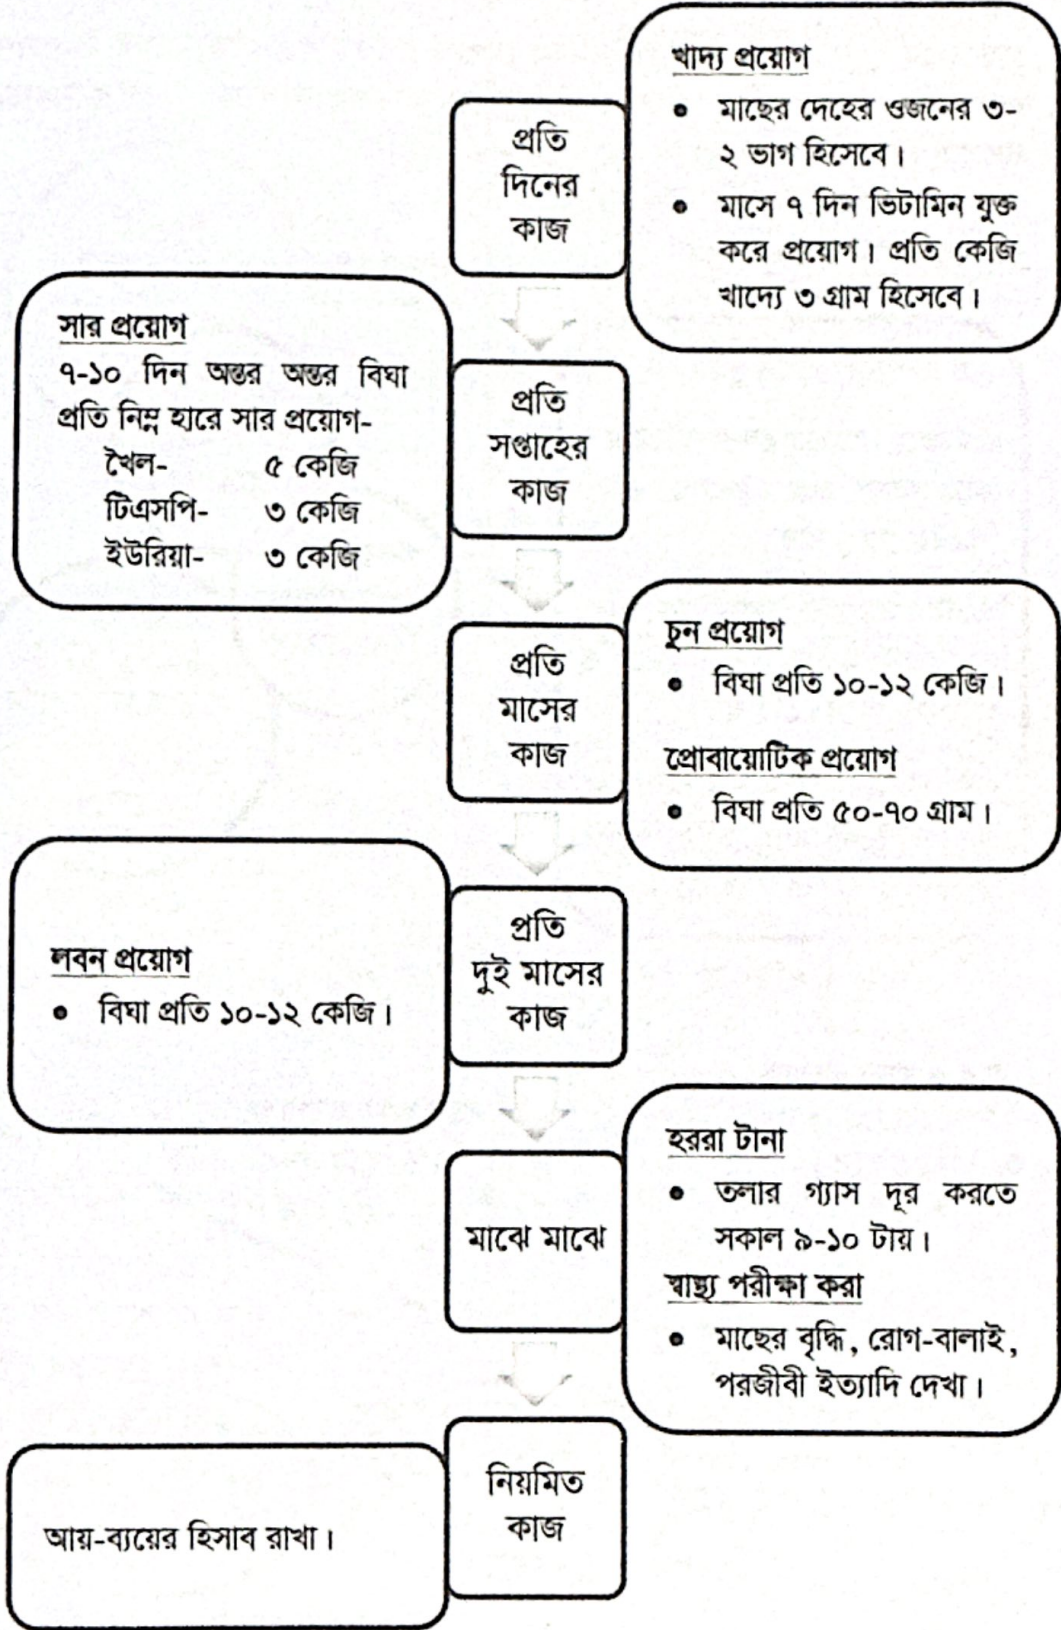 প্রতি
দিনের
কাজ
খাদ্য প্রয়োগ
• মাছের দেহের ওজনের ৩-
২ ভাগ হিসেবে।
• মাসে ৭ দিন ভিটামিন যুক্ত
করে প্রয়োগ। প্রতি কেজি
খাদ্যে ৩ গ্রাম হিসেবে।
প্রতি
সপ্তাহের
কাজ
সার প্রয়োগ
৭-১০ দিন অন্তর অন্তর বিঘা
প্রতি নিম্ন হারে সার প্রয়োগ-
খৈল- ৫ কেজি
টিএসপি- ৩ কেজি
ইউরিয়া- ৩ কেজি
প্রতি
মাসের
কাজ
চুন প্রয়োগ
• বিঘা প্রতি ১০-১২ কেজি।
প্রোবায়োটিক প্রয়োগ
• বিঘা প্রতি ৫০-৭০ গ্রাম।
প্রতি
দুই মাসের
কাজ
লবন প্রয়োগ
• বিঘা প্রতি ১০-১২ কেজি।
মাঝে মাঝে
হররা টানা
• তলার গ্যাস দূর করতে
সকাল ৯-১০ টায়।
স্বাস্থ্য পরীক্ষা করা
• মাছের বৃদ্ধি, রোগ-বালাই,
পরজীবী ইত্যাদি দেখা।
নিয়মিত
কাজ
আয়-ব্যয়ের হিসাব রাখা।